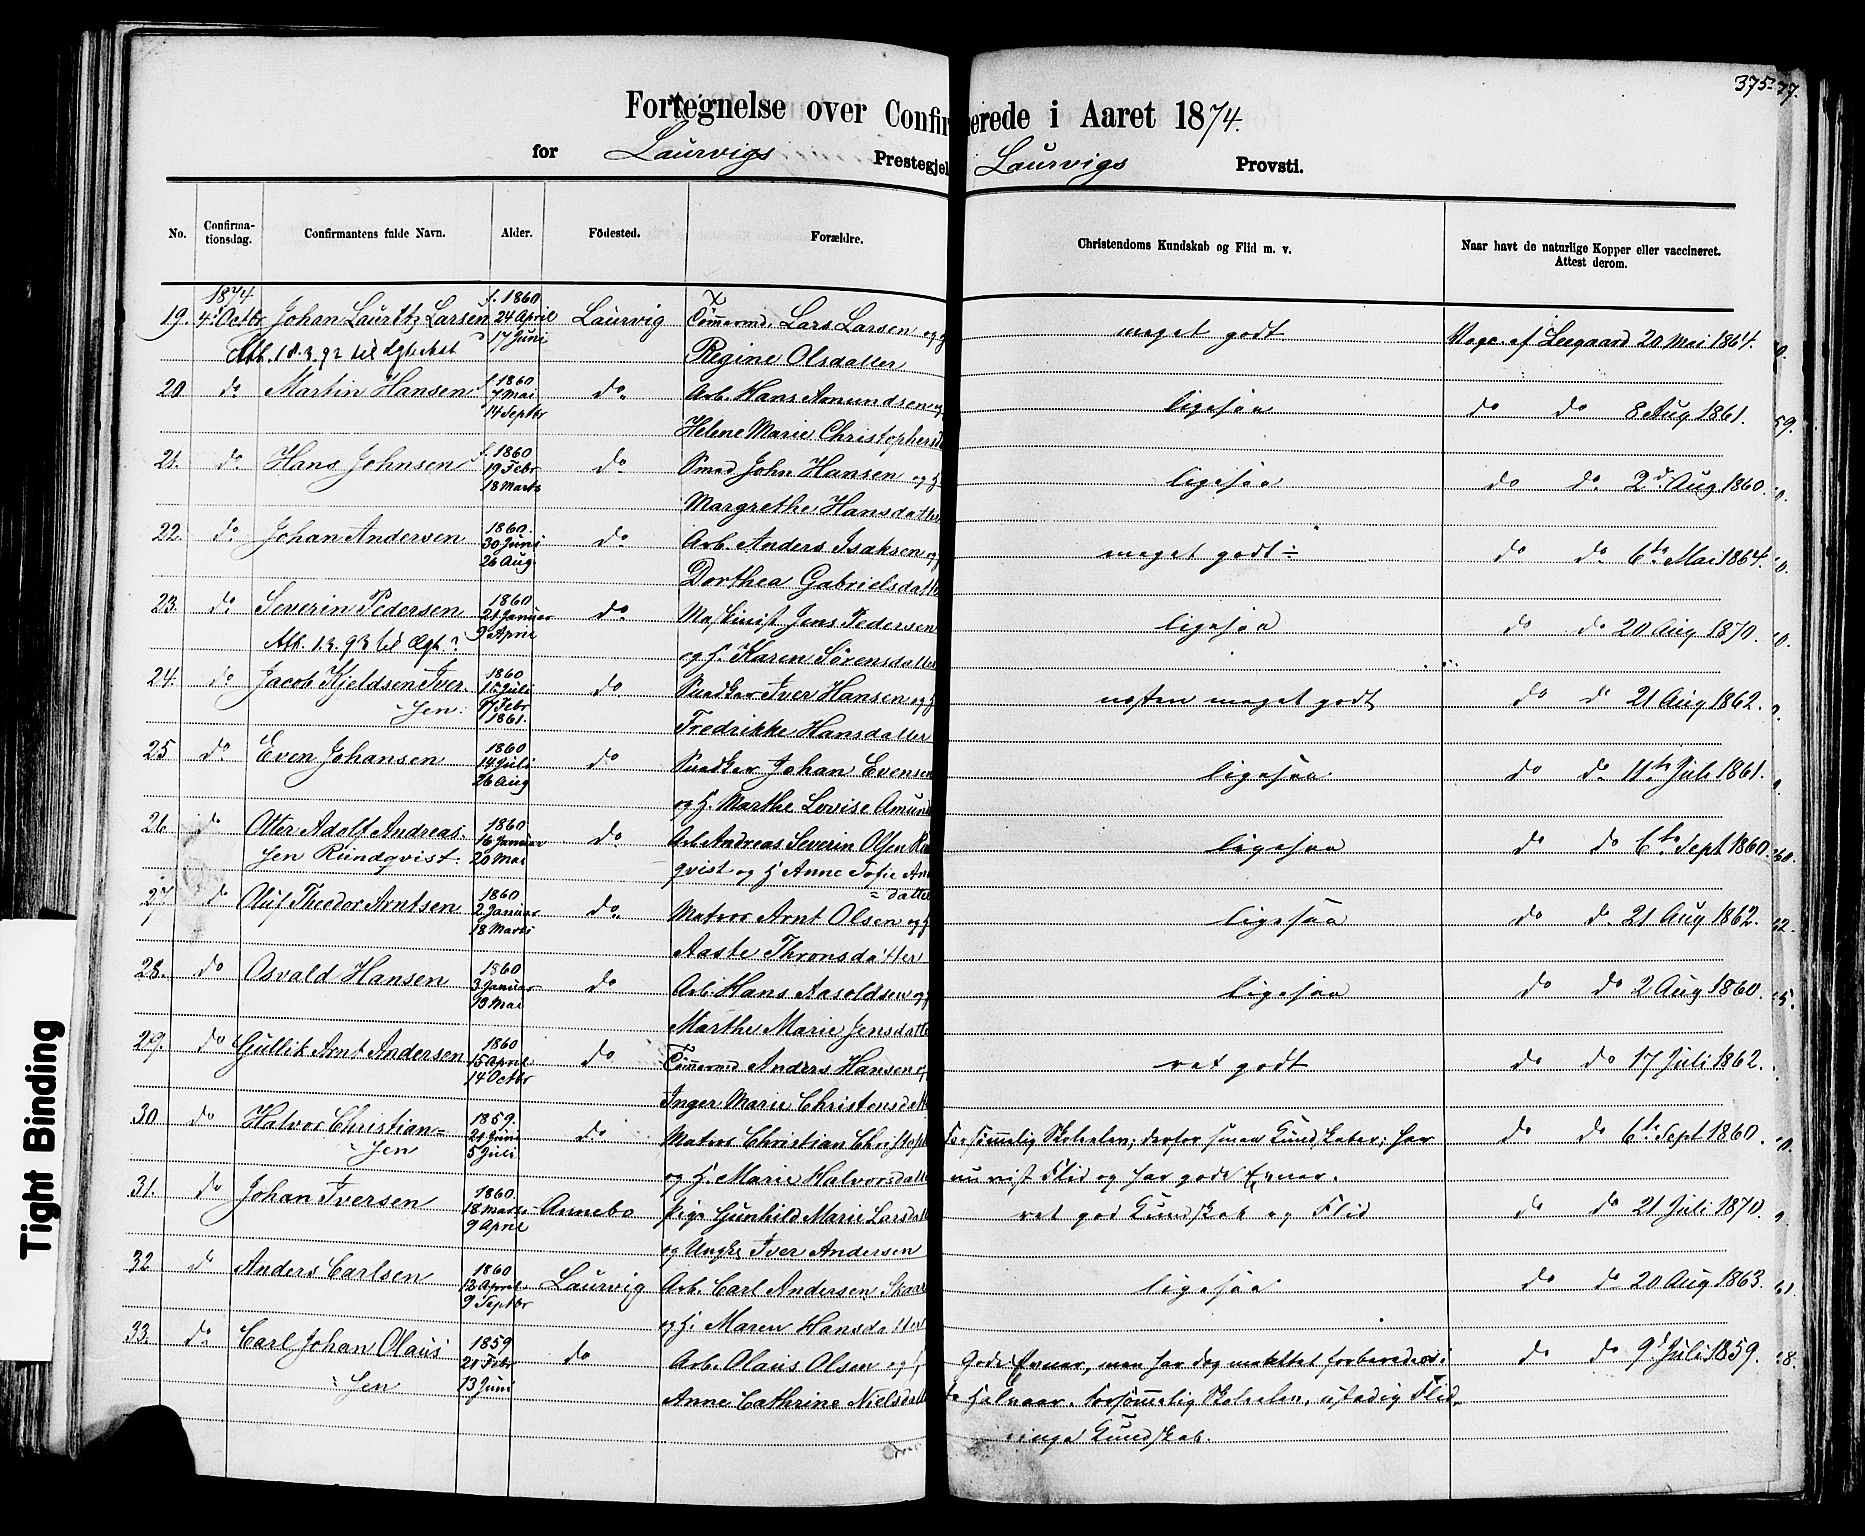 375. 77.
Fortegnelse over Confirmerede i Aaret 1874.
for Laurvigs Prestegjel Laurvigs Provsti.
No. Confirma-tionsdag. Confirmantens fulde Navn. Alder. Födested. Forældre. Christendoms Kundskab og Flid m. v. Naar havt de naturlige Kopper eller vaccineret. Attest derom.
1874 f. 1860
19. 4d Octbr Johan Lauritz Larsen 24 April Laurvig Tømmermd. Lars Larsen og H meget godt Vacc. af Leegaard 20 Mai 1864.
Att. 18.3.92 til Ægteskab 17 Juni Regine Olsdatter
f. 1860
20. do Martin Hansen 7 Mai do Arb. Hans Amundsen og ligesaa do do 8 Aug 1861.
14 Septbr Helene Marie Christophersd
f. 1860
21. do Hans Johnsen 19 Febr do Smed John Hansen og H. ligesaa do do 2d Aug 1860.
18 Marts Margrethe Hansdatter
1860.
22. do Johan Andersen 30 Juni do Arb. Anders Isaksen og H meget godt ÷ do do 6te Mai 1864.
26 Aug. Dorthea Gabrielsdatt
1860
23. do Severin Pedersen 21 Januar do Maskinist Jens Pedersen ligesaa do do 20 Aug 1870.
Att. 1.3.93 til Ægt. 9 April og H. Karen Sörensdatter
1860
24. do Jacob Kjeldsen Iver- 15 Juli do Snedker Iver Hansen og H næsten meget godt do do 21 Aug 1862.
sen. 17 Febr 1861. Fredrikke Hansdatter
1860
25 do Even Johansen 14 Juli do Snedker Johan Evensen ligesaa do do 11te Juli 1861.
26 Aug og H. Marthe Lovise Amund
1860
26. do Otter Adolf Andreas- 16 Januar do Arb. Andreas Severin Olsen Run ligesaa do do 6te Sept 1860.
sen Rundqvist. 20 Mai qvist og H Anne Sofie An
datter
1860
27 do Oluf Theodor Arntsen 2 Januar do Matros Arnt Olsen og H ligesaa do do 21 Aug 1862.
18 Marts Aaste Thronsdatter
1860
28. do Osvald Hansen 3 Januar do Arb. Hans Aasoldsen og H ligesaa do do 2 Aug 1860.
13 Mai Marthe Marie Jensdatte
1860
29. do Gullik Arnt Andersen 15 April do Tømmermd Anders Hansen og ret godt do do 17 Juli 1862.
14 Octbr Inger Marie Christensdatt
1859.
30 do Halvor Christian- 21 Juni do Matros Christian Christoph Forsømmelig Skolesøgn, derfor smaa Kundskaber; har do do 6te Sept 1860.
sen 5 Juli og H. Marie Halvorsdatte nu vist Flid og har gode Evner.
1860.
31. do Johan Iversen 18 Marts Annebo Pige Gunhild Marie Larsdatt ret god Kundskab og Flid do do 21 Juli 1870.
9 April og Ungk. Iver Andersen
1860
32 do Anders Carlsen 12 April Laurvig Arb. Carl Andersen Skar ligesaa do do 20 Aug 1863.
9 Septbr og H. Maren Hansdatter
1859
33. do Carl Johan Olaus- 21 Febr do Arb. Olaus Olsen og H Gode Evner, men har dog maattet forberedes i do do 9d Juli 1859.
sen 13 Juni Anne Cathrine Nielsdatt to Halvaar. Forsømmelig Skolesøgn, ustadig Flid,
ringe Kundskab.
Tight Binding